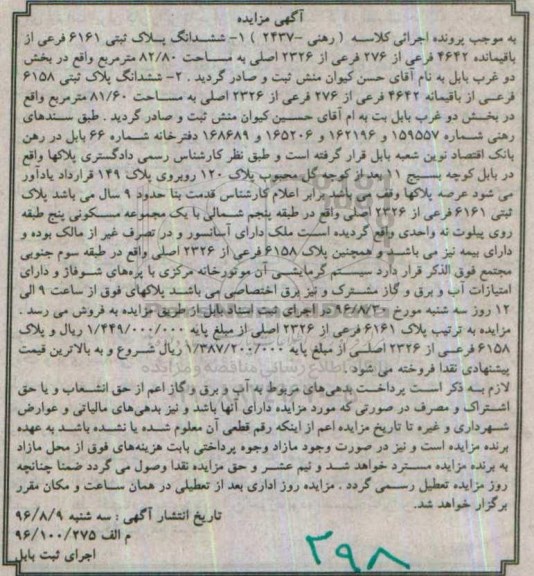 آگهی مزایده
به موجب پرونده اجرائی کلاسه ( رهنی –۲۴۳۷ ) ۱- ششدانگ پلاک ثبتی ۶۱۶۱ فرعی از
باقیمانده ۴۶۴۲ فرعی از ۲۷۶ فرعی از ۲۳۲۶ اصلی به مساحت ۸۲/۸۰ مترمربع واقع در بخش
دو غرب بابل به نام آقای حسن کیوان منش ثبت و صادر گردید . ۲- ششدانگ پلاک ثبتی ۶۱۵۸
فرعی از باقیمانه ۴۶۴۲ فرعی از ۲۷۶ فرعی از ۲۳۲۶ اصلی به مساحت ۸۱/۶۰ مترمربع واقع
در بخش دو غرب بابل بت به ام آقای حسین کیوان منش ثبت و صادر گردید . طبق سندهای
رهنی شماره ۱۵۹۵۵۷ و ۱۶۲۱۹۶ و ۱۶۵۲۰۶ و ۱۶۸۶۸۹ دفترخانه شماره ۶۶ بابل در رهن
بانک اقتصاد نوین شعبه بابل قرار گرفته است و طبق نظر کارشناس رسمی دادگستری پلاکها واقع
در بابل کوچه بسیج ۱۱ بعد از کوچه گل محبوب پلاک ۱۲۰ روبروی پلاک ۱۴۹ قرارداد یادآور
می شود عرصه پلاکها وقف می باشد برابر اعلام کارشناس قدمت بنا حدود ۹ سال می باشد پلاک
ثبتی ۶۱۶۱ فرعی از ۲۳۲۶ اصلی واقع در طبقه پنجم شمالی با یک مجموعه مسکونی پنج طبقه
روی پیلوت نه واحدی واقع گردیده است ملک دارای آسانسور و در تصرف غیر از مالک بوده و
دارای بیمه نیز می باشد و همچنین پلاک ۶۱۵۸ فرعی از ۲۳۲۶ اصلی واقع در طبقه سوم جنوبی
مجتمع فوق الذکر قرار دارد سیستم گرمایشی آن موتورخانه مرکزی با پره‌های شوفاژ و دارای
امتیازات آب و برق و گاز مشترک و نیز برق اختصاصی می باشد پلاکهای فوق از ساعت ۹ الی
۱۲ روز سه شنبه مورخ ۹۶/۸/۳۰ در اجرای ثبت اسناد بابل از طریق مزایده به فروش می رسد .
مزایده به ترتیب پلاک ۶۱۶۱ فرعی از ۲۳۲۶ اصلی از مبلغ پایه ۱/۴۴۹/۰۰۰/۰۰۰ ریال و پلاک
۶۱۵۸ فرعی از ۲۳۲۶ اصلی از مبلغ پایه ۱/۳۸۷/۲۰۰/۰۰۰ ریال شروع و به بالاترین قیمت
پیشنهادی نقدا فروخته می شود.
لازم به ذکر است پرداخت بدهی‌های مربوط به آب و برق و گاز اعم از حق انشعاب و یا حق
اشتراک و مصرف در صورتی که مورد مزایده دارای آنها باشد و نیز بدهی‌های مالیاتی و عوارض
شهرداری و غیره تا تاریخ مزایده اعم از اینکه رقم قطعی آن معلوم شده یا نشده باشد به عهده
برنده مزایده است و نیز در صورت وجود مازاد وجوه پرداختی بابت هزینه‌های فوق از محل مازاد
به برنده مزایده مسترد خواهد شد و نیم عشر و حق مزایده نقدا وصول می گردد ضمنا چنانچه
روز مزایده تعطیل رسمی گردد . مزایده روز اداری بعد از تعطیلی در همان ساعت و مکان مقرر
برگزار خواهد شد.
تاریخ انتشار آگهی : سه شنبه ۹۶/۸/۹
م الف ۹۶/۱۰۰/۲۷۵
اجرای ثبت بابل
۳۹۸